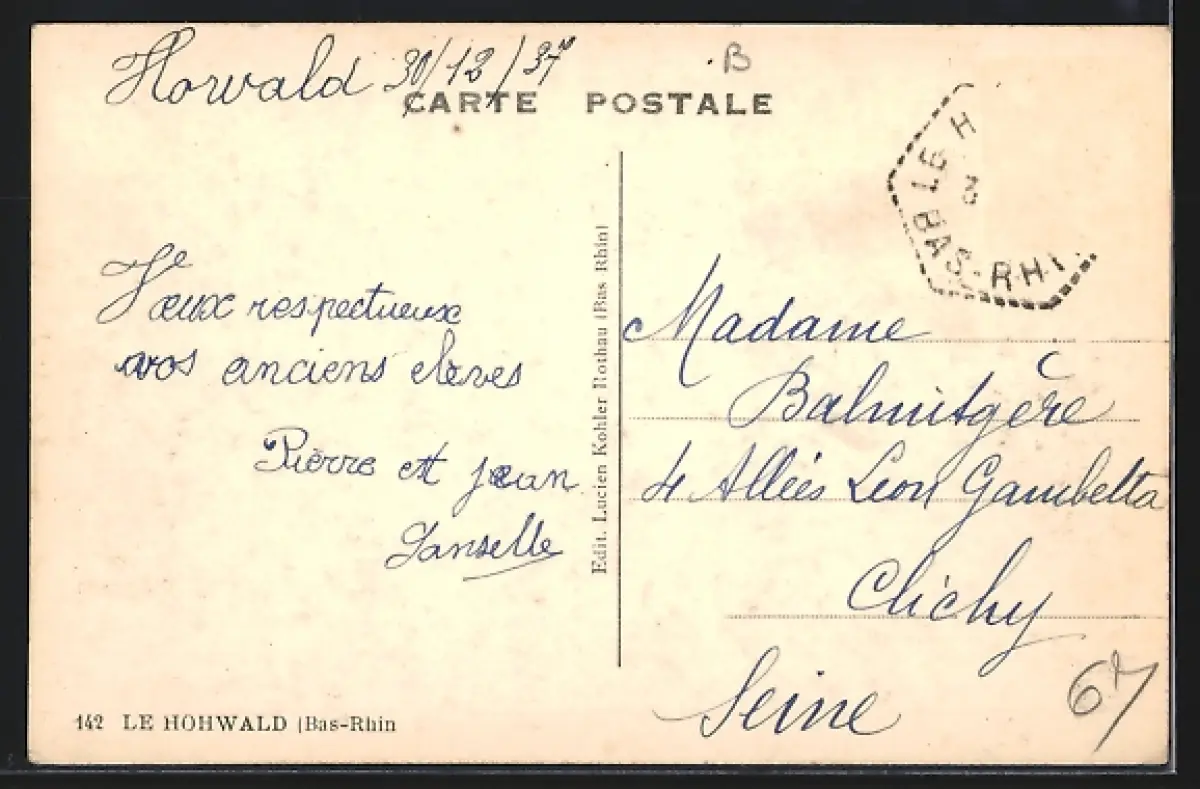 Horwald 30/12/37
B
CARTE POSTALE
LE H
3
BAS-RHI
Vœux respectueux
vos anciens elèves
Pierre et jean
Janselle
Edit. Lucien Kohler Rothau (Bas Rhin)
Madame
Balmitgère
4 Allées Léon Gambetta
Clichy
Seine
67
142 LE HOHWALD (Bas-Rhin